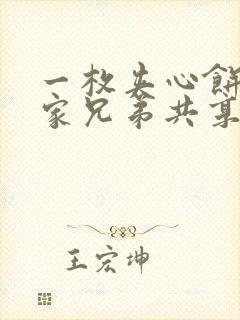 一枚夹心餅
家兄弟共某
王宏坤